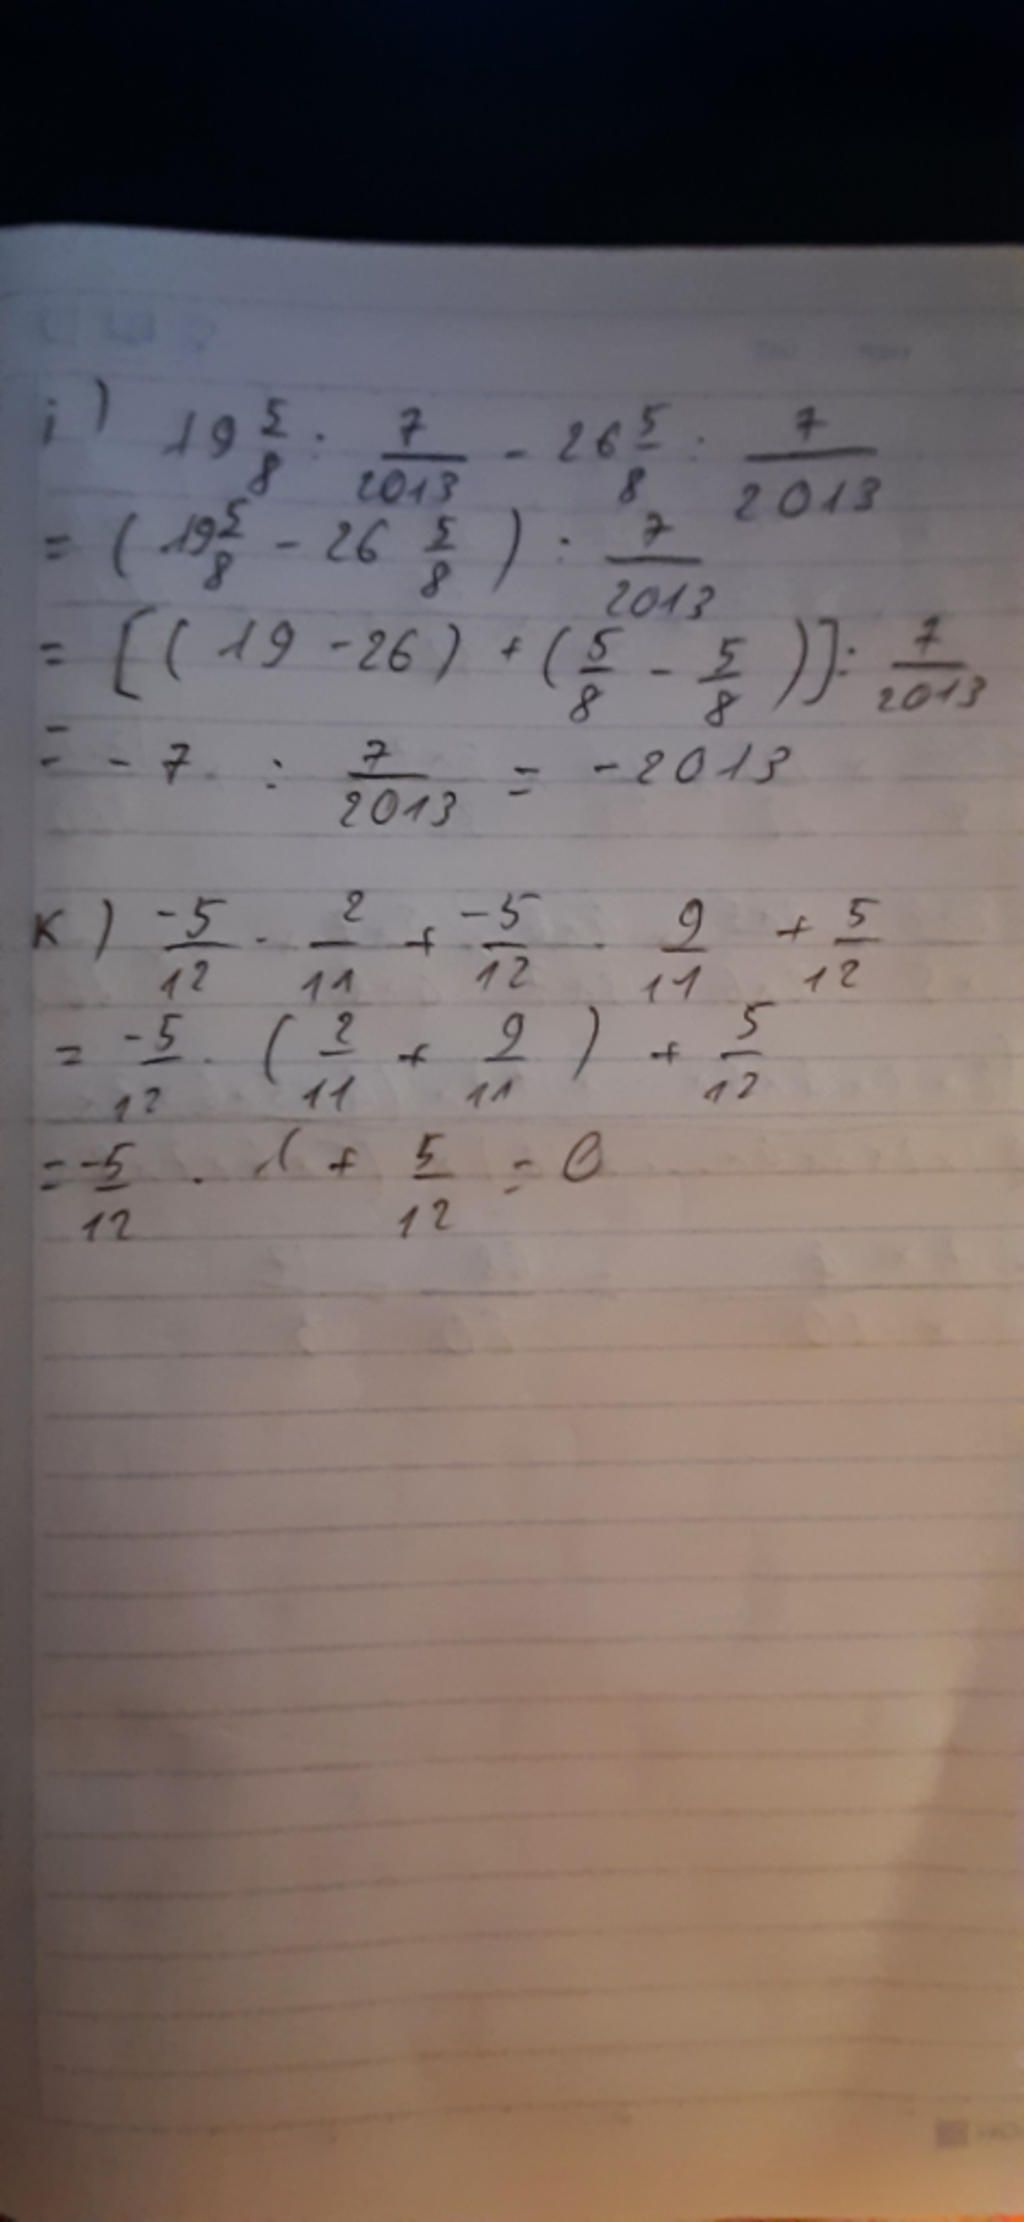 i) 19 5/8 : 7/2013 - 26 5/8 : 7/2013
= ( 19 5/8 - 26 5/8 ) : 7/2013
= [( 19 - 26 ) + ( 5/8 - 5/8 )] : 7/2013
= - 7 : 7/2013 = - 2013
K) -5/12 . 2/11 + -5/12 . 9/11 + 5/12
= -5/12 . ( 2/11 + 9/11 ) + 5/12
= -5/12 . 1 + 5/12 = 0